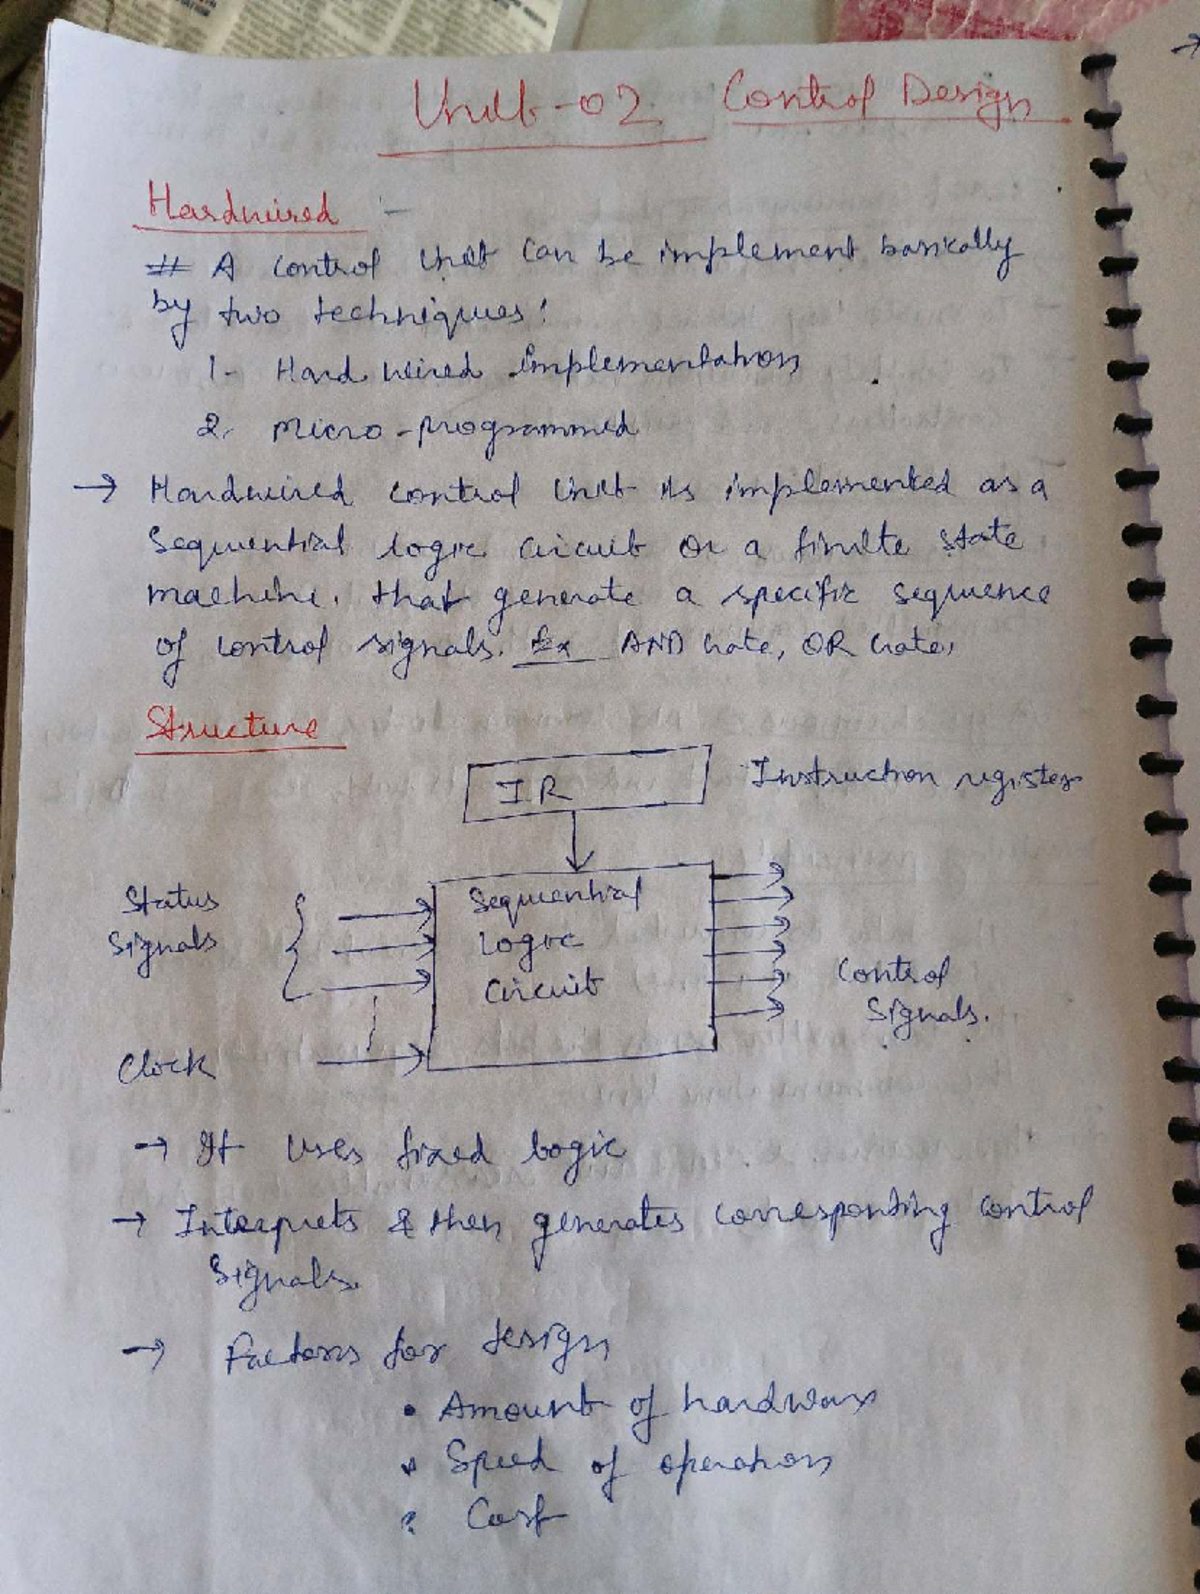 Unit-02 Control Design
Hardwired :-
# A control Unit can be implement basically
by two techniques:
1- Hard wired implementation
2. Micro-programmed
→ Hardwired control Unit is implemented as a
Sequential logic circuit or a finite state
machine. that generate a specific sequence
of control signals. Ex AND Gate, OR Gate.
Structure
IR
Instruction register
Status
Signals
Sequential
Logic
Circuit
Control
Signals.
Clock
→ It Uses fixed logic
→ Interprets & then generates corresponding control
Signals.
→ Factors for design
• Amount of hardware
• Speed of operation
• Cost